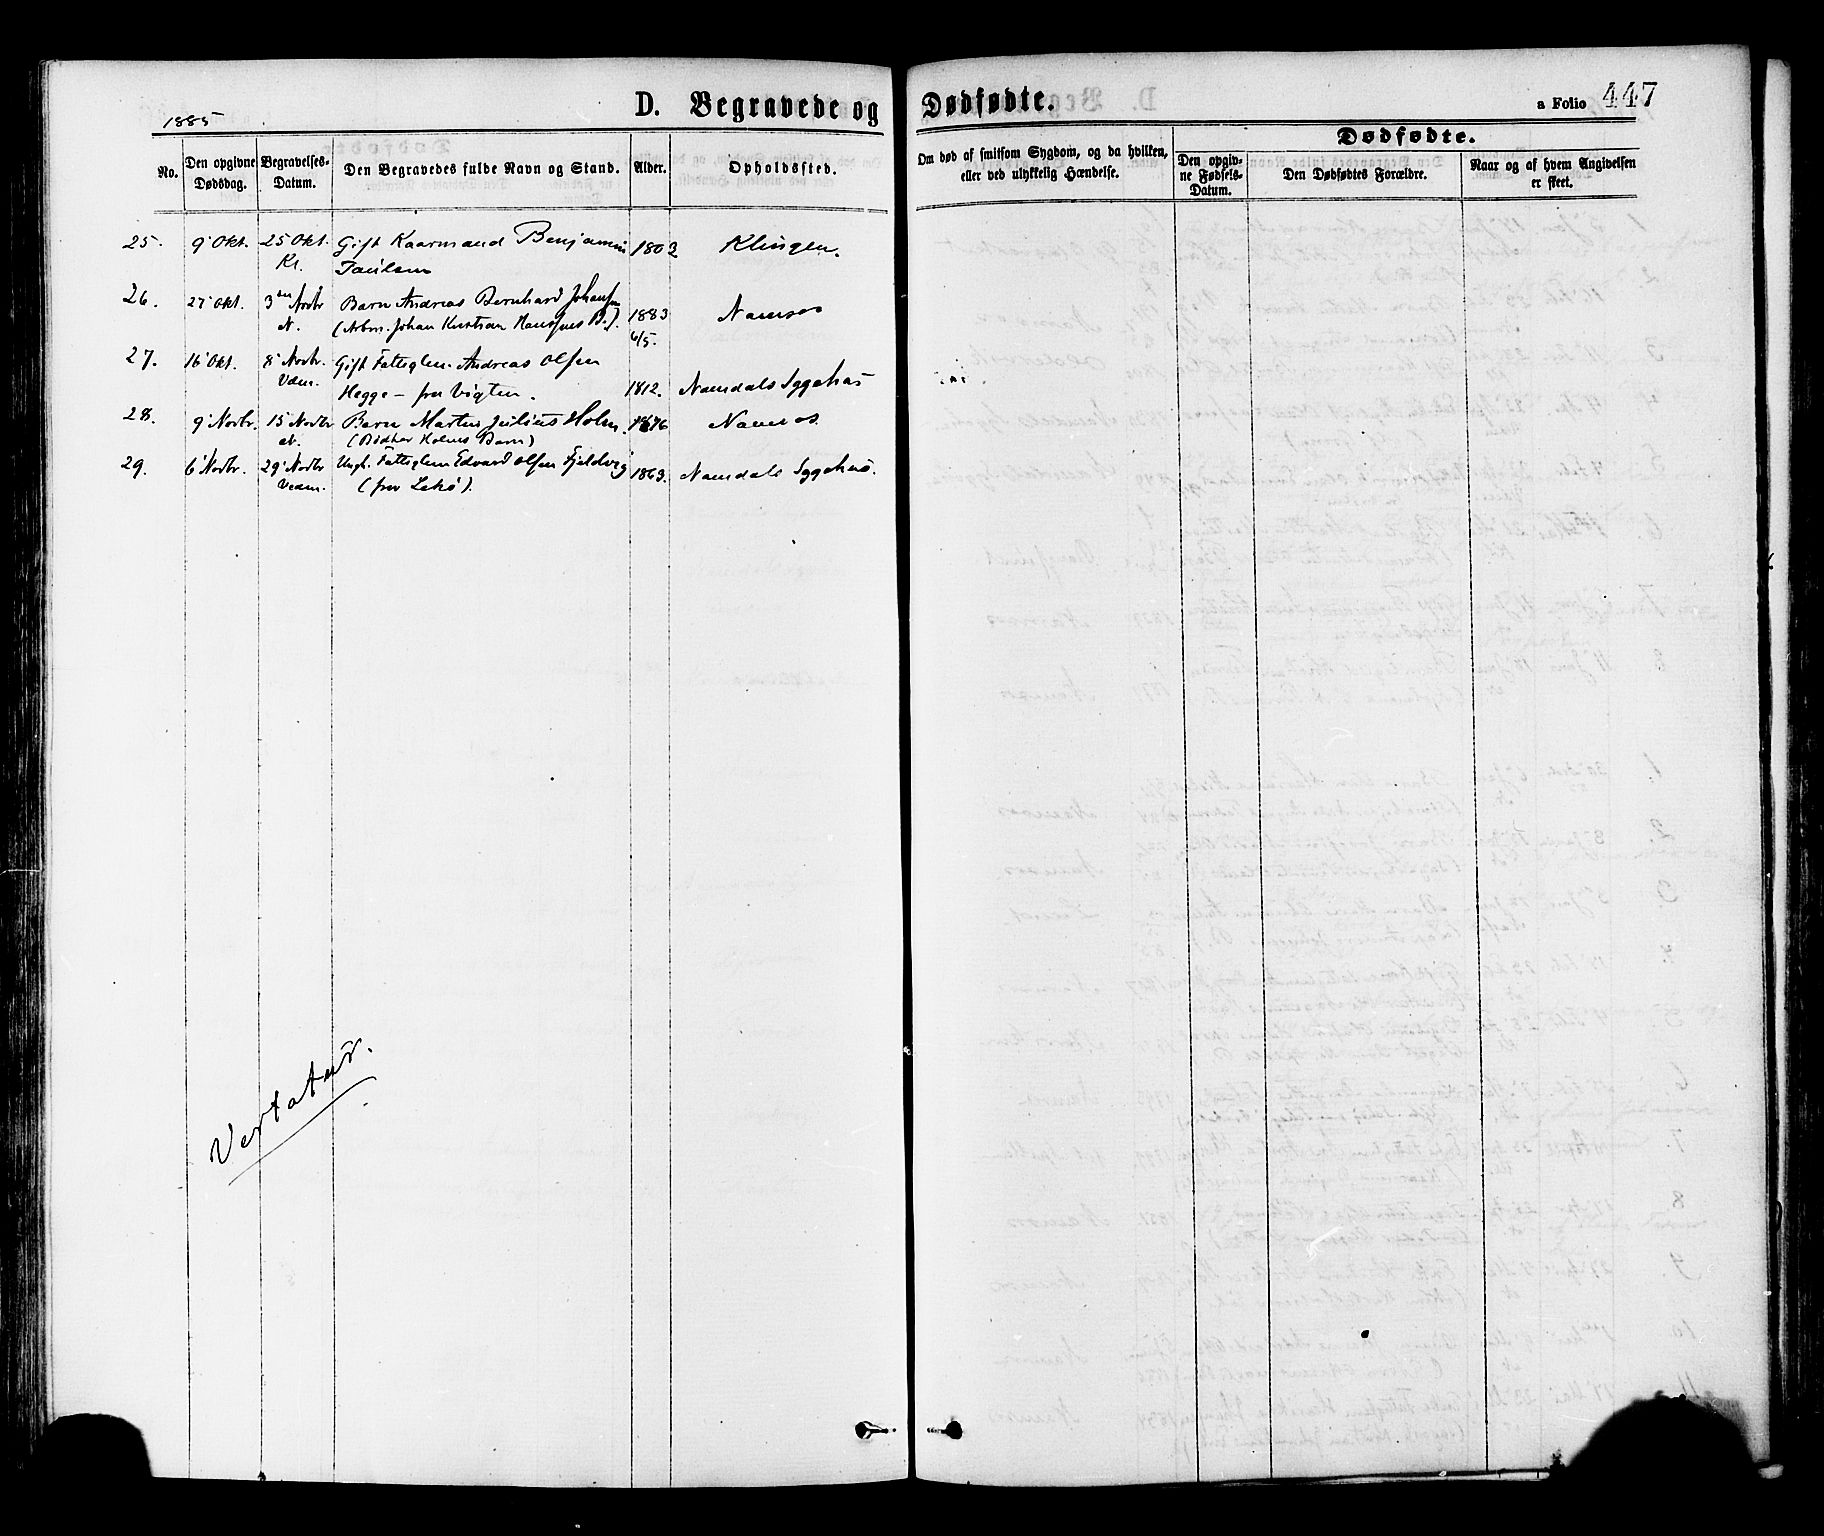 1885
D. Begravede og Dødfødte.
a Folio 447
No.
Den opgivne Dødsdag.
Begravelses-Datum.
Den Begravedes fulde Navn og Stand.
Alder.
Opholdssted.
Om død af smitsom Sygdom, og da hvilken, eller ved ulykkelig Hændelse.
Dødfødte.
Den opgivne Fødsels-Datum.
Den Dødfødtes Forældre.
Naar og af hvem Angivelsen er skeet.
25. 9' Okt. 25 Okt. Gift Kaarmand Benjamin 1803 Klingen.
Kl. Paulsen
26. 27' Okt. 3 Novbr Barn Andreas Bernhard Johansen 1883 Namsos
N. (Arbm. Johan Kristian Hansens B.). 6/5.
27. 16' Okt. 8' Novbr. Gift Fattiglem Andreas Olsen
Vdm. Hegge - fra Vigten. 1812. Namdals Sygehus
28. 9' Novbr. 15 Novbr Barn Martin Julius Holm. 1876 Namsos.
N. (Bødker Holms Barn)
29. 6' Novbr. 29' Novbr Ungk. Fattiglem Edvard Olsen Fjeldvig 1863. Namdals Sygehus.
Vedm. (fra Lekø).
Vertatur.